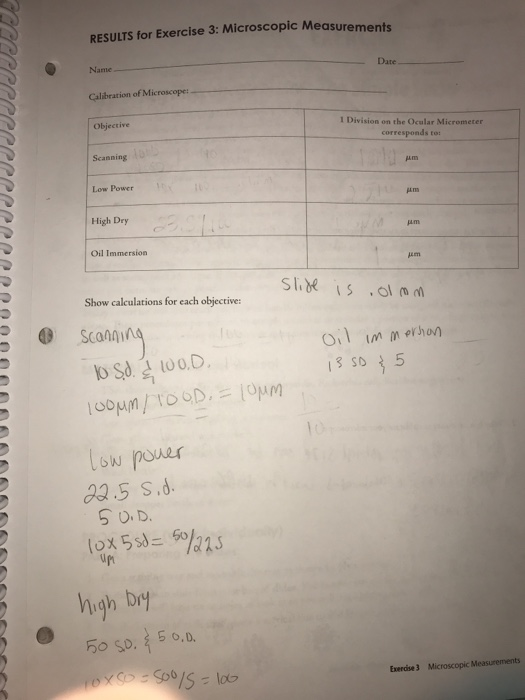 RESULTS for Exercise 3: Microscopic Measurements
Name
Date
Calibration of Microscope:
Objective
1 Division on the Ocular Micrometer
corresponds to:
Scanning
µm
Low Power
µm
High Dry
µm
Oil Immersion
µm
Slide is .01 mm
Show calculations for each objective:
Scanning
10 S.d. & 10 O.D.
100µm/10 O.D. = 10µm
Oil immershon
13 SD & 5
low power
22.5 S.d.
5 O.D.
10x5sd= 50/225
µm
high Dry
50 SD. & 5 O.D.
10x50=500/5=100
Exercise 3 Microscopic Measurements